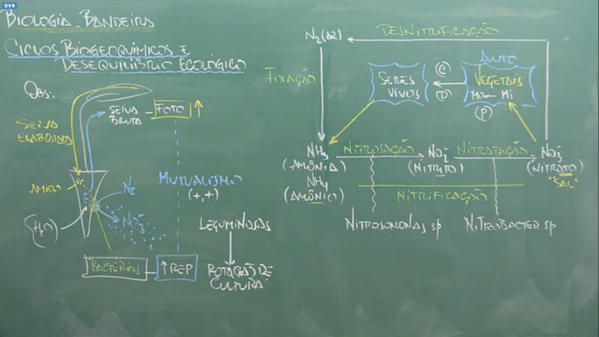 DVR
BIOLOGIA BANDEIRA
CICLOS BIOGEOQUÍMICOS E
DESEQUILÍBRIO ECOLÓGICO
OBS:
SEIVA
BRUTA
FOTO ↑
SEIVA
ELABORADA
AMIDO
N2
NO3-
(H2O)
MUTUALISMO
(+,+)
LEGUMINOSAS
BACTÉRIAS
↑ REP
ROTAÇÃO DE
CULTURA
N2 (AR)
DESNITRIFICAÇÃO
FIXAÇÃO
SERES
VIVOS
(C)
(D)
AUTO
VEGETAIS
Ma Mi
(P)
NH3
(AMÔNIA)
NH4
(AMÔNIO)
NITROSAÇÃO
NO2-
(NITRITO)
NITRATAÇÃO
NO3-
(NITRATO)
"SAL"
NITRIFICAÇÃO
NITROSOMONAS SP
NITROBACTER SP